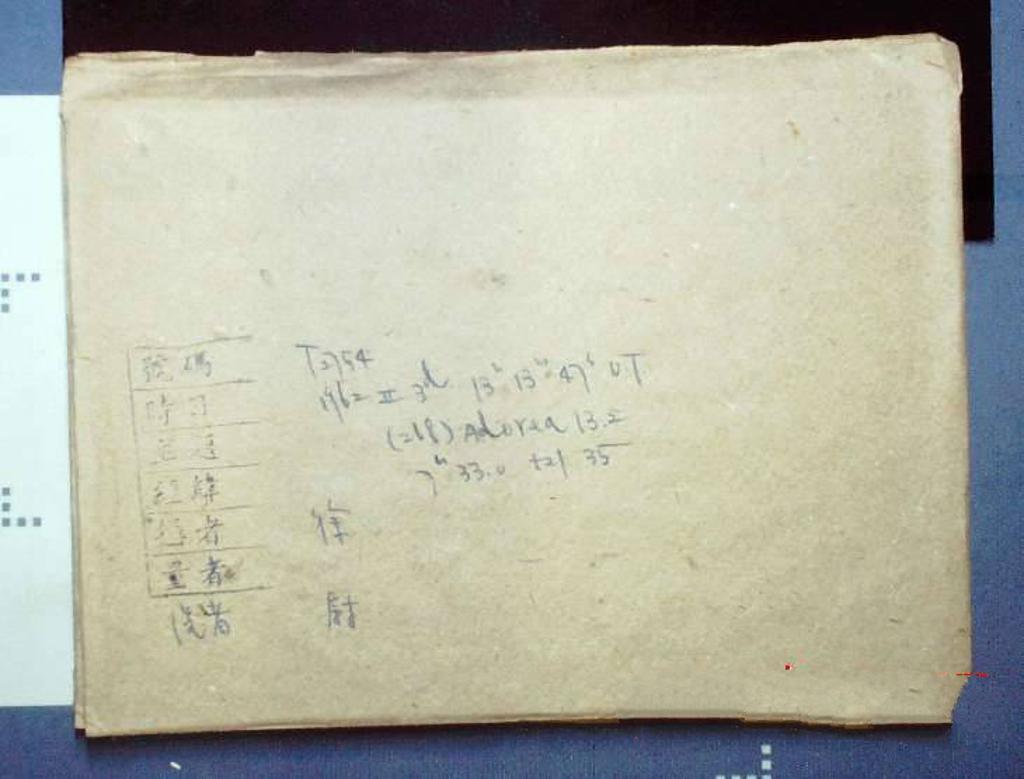 號碼 T2754
時刻 1962 II 3d 13h 13m 47s UT
星題 (268) Adorea 13.2
經緯 7h 33.0 +21 35
攝者 徐
量者
洗者 尉